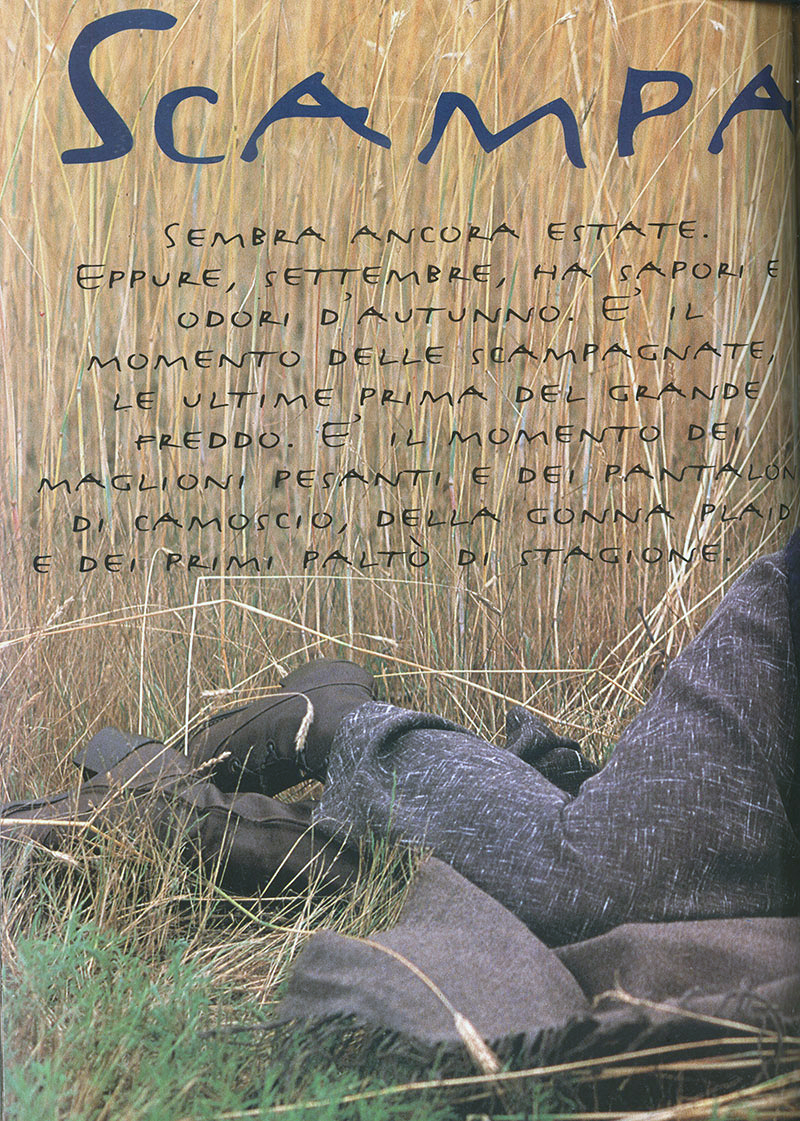 SCAMPA
SEMBRA ANCORA ESTATE.
EPPURE, SETTEMBRE, HA SAPORI E
ODORI D'AUTUNNO. E' IL
MOMENTO DELLE SCAMPAGNATE,
LE ULTIME PRIMA DEL GRANDE
FREDDO. E' IL MOMENTO DEI
MAGLIONI PESANTI E DEI PANTALON
DI CAMOSCIO, DELLA GONNA PLAID
E DEI PRIMI PALTÒ DI STAGIONE.